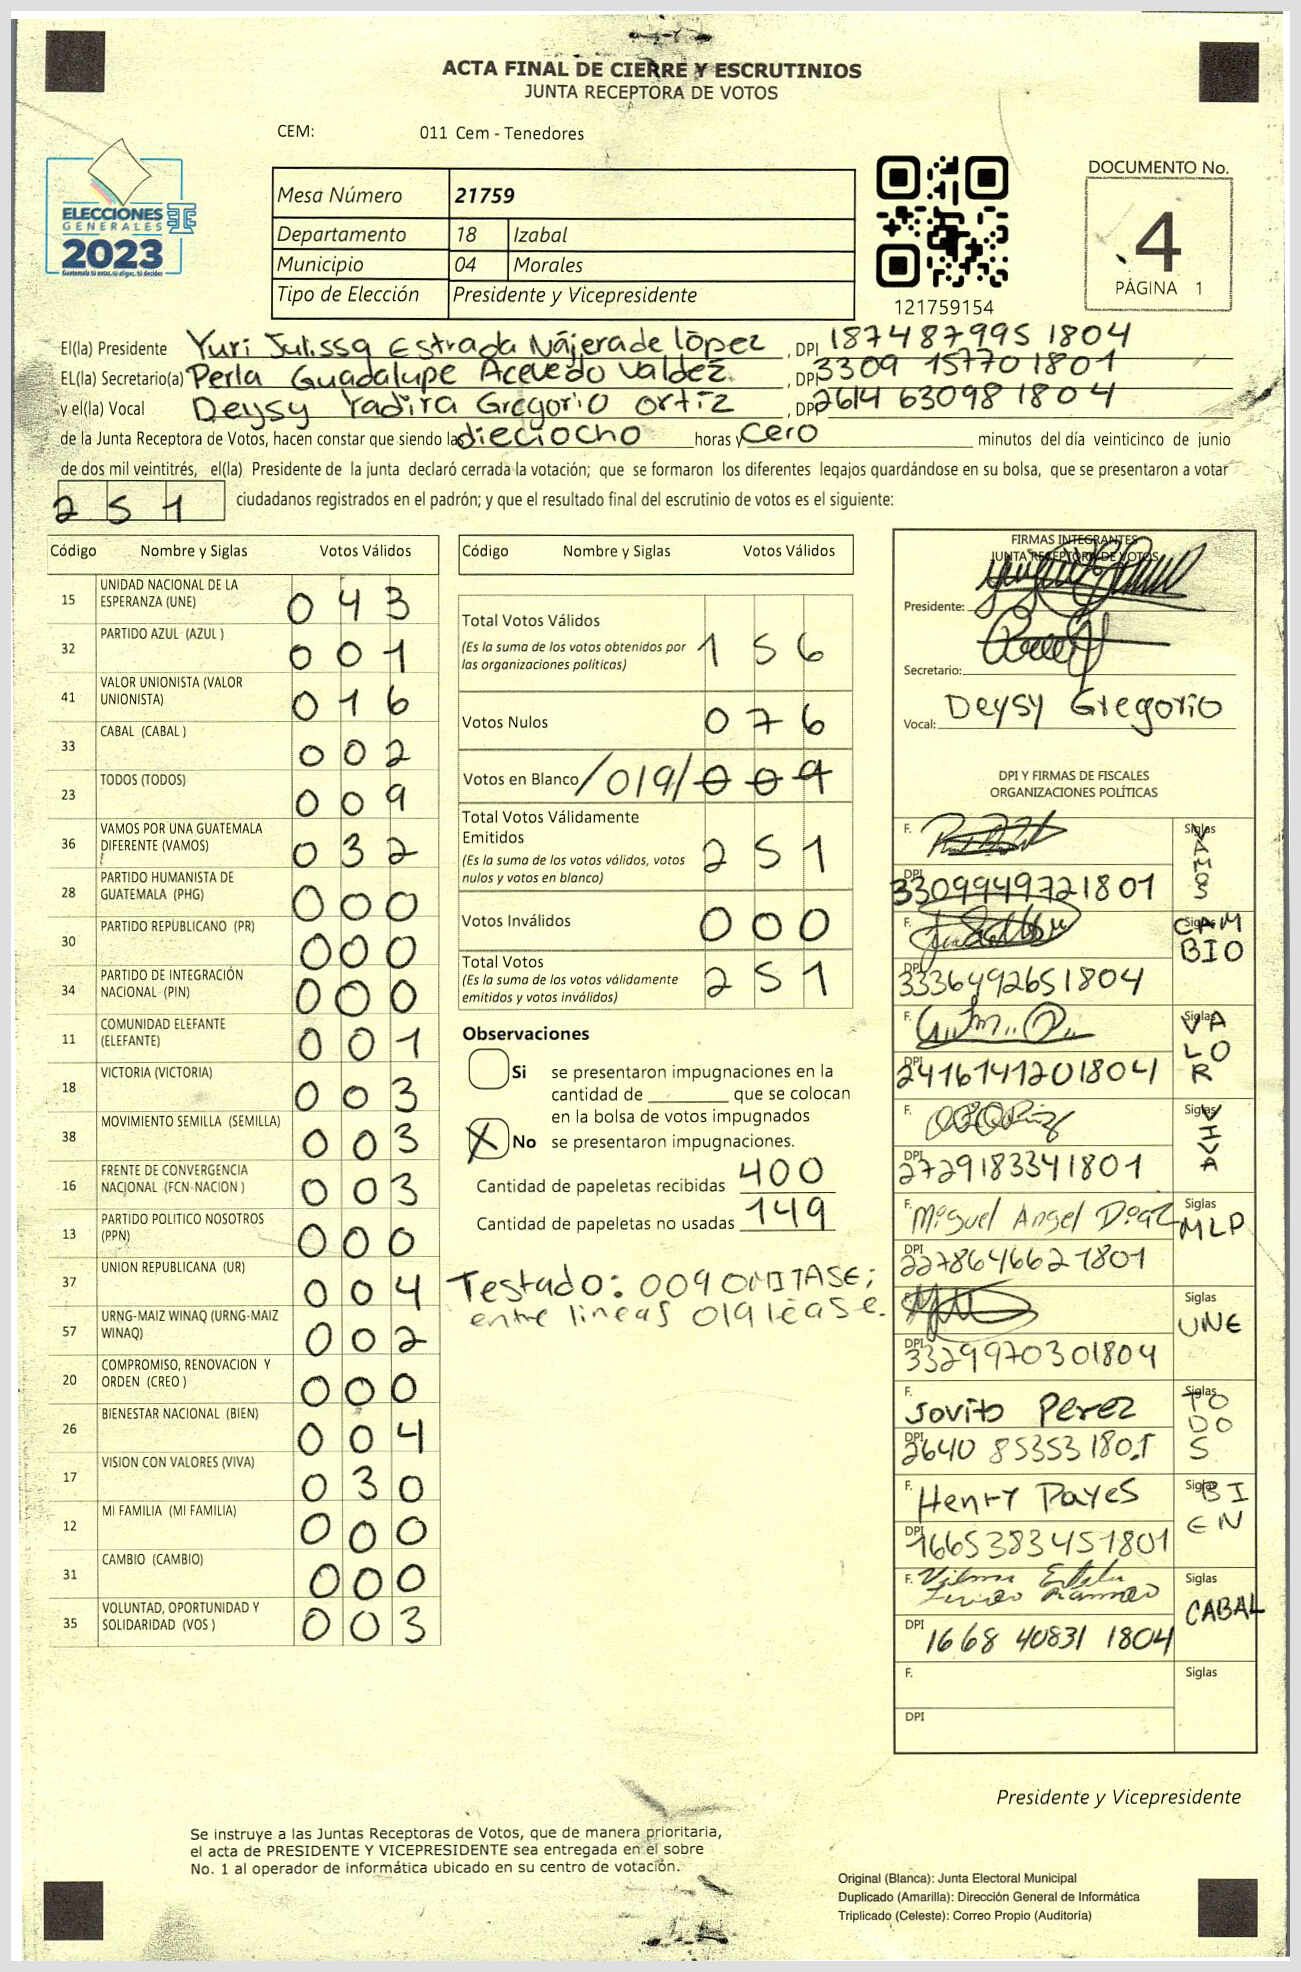 ACTA FINAL DE CIERRE Y ESCRUTINIOS
JUNTA RECEPTORA DE VOTOS
CEM: 011 Cem - Tenedores
ELECCIONES
GENERALES
2023
Guatemala tú eres, tú eliges, tú decides
Mesa Número 21759
Departamento 18 Izabal
Municipio 04 Morales
Tipo de Elección Presidente y Vicepresidente
121759154
DOCUMENTO No.
4
PÁGINA 1
El(la) Presidente Yuri Julissa Estrada Nájera de López , DPI 187487995 1804
EL(la) Secretario(a) Perla Guadalupe Acevedo Valdez , DPI 3309 15770 1801
y el(la) Vocal Deysy Yadira Gregorio Ortiz , DPI 2614 63098 1804
de la Junta Receptora de Votos, hacen constar que siendo las dieciocho horas y Cero minutos del día veinticinco de junio
de dos mil veintitrés, el(la) Presidente de la junta declaró cerrada la votación; que se formaron los diferentes legajos quardándose en su bolsa, que se presentaron a votar
251 ciudadanos registrados en el padrón; y que el resultado final del escrutinio de votos es el siguiente:
Código Nombre y Siglas Votos Válidos
15 UNIDAD NACIONAL DE LA ESPERANZA (UNE) 043
32 PARTIDO AZUL (AZUL ) 001
41 VALOR UNIONISTA (VALOR UNIONISTA) 016
33 CABAL (CABAL ) 002
23 TODOS (TODOS) 009
36 VAMOS POR UNA GUATEMALA DIFERENTE (VAMOS) 032
28 PARTIDO HUMANISTA DE GUATEMALA (PHG) 000
30 PARTIDO REPUBLICANO (PR) 000
34 PARTIDO DE INTEGRACIÓN NACIONAL (PIN) 000
11 COMUNIDAD ELEFANTE (ELEFANTE) 001
18 VICTORIA (VICTORIA) 003
38 MOVIMIENTO SEMILLA (SEMILLA) 003
16 FRENTE DE CONVERGENCIA NACIONAL (FCN-NACION ) 003
13 PARTIDO POLITICO NOSOTROS (PPN) 000
37 UNION REPUBLICANA (UR) 004
57 URNG-MAIZ WINAQ (URNG-MAIZ WINAQ) 002
20 COMPROMISO, RENOVACION Y ORDEN (CREO ) 000
26 BIENESTAR NACIONAL (BIEN) 004
17 VISION CON VALORES (VIVA) 030
12 MI FAMILIA (MI FAMILIA) 000
31 CAMBIO (CAMBIO) 000
35 VOLUNTAD, OPORTUNIDAD Y SOLIDARIDAD (VOS ) 003
Código Nombre y Siglas Votos Válidos
Total Votos Válidos 156
(Es la suma de los votos obtenidos por
las organizaciones políticas)
Votos Nulos 076
Votos en Blanco /019/ 009
Total Votos Válidamente
Emitidos 251
(Es la suma de los votos válidos, votos
nulos y votos en blanco)
Votos Inválidos 000
Total Votos 251
(Es la suma de los votos válidamente
emitidos y votos inválidos)
Observaciones
Si se presentaron impugnaciones en la
cantidad de ________ que se colocan
en la bolsa de votos impugnados
X No se presentaron impugnaciones.
Cantidad de papeletas recibidas 400
Cantidad de papeletas no usadas 149
Testado: 009 OMITASE;
entre lineas 019 léase.
FIRMAS INTEGRANTES
JUNTA RECEPTORA DE VOTOS
Presidente:
Secretario:
Vocal: Deysy Gregorio
DPI Y FIRMAS DE FISCALES
ORGANIZACIONES POLÍTICAS
F. Siglas VAMOS
DPI 3309949721801
F. Siglas CAMBIO
DPI 3336492651804
F. Siglas VALOR
DPI 2416141201804
F. Siglas VIVA
DPI 2729183341801
F. Miguel Angel Diaz Siglas MLP
DPI 2278646621801
F. Siglas UNE
DPI 3329970301804
F. Jovito Perez Siglas TODOS
DPI 2640 85353 1801
F. Henry Payes Siglas BIEN
DPI 1665383451801
F. Vilma Siglas CABAL
DPI 1668 40831 1804
F. Siglas
DPI
Presidente y Vicepresidente
Se instruye a las Juntas Receptoras de Votos, que de manera prioritaria,
el acta de PRESIDENTE Y VICEPRESIDENTE sea entregada en el sobre
No. 1 al operador de informática ubicado en su centro de votación.
Original (Blanca): Junta Electoral Municipal
Duplicado (Amarilla): Dirección General de Informática
Triplicado (Celeste): Correo Propio (Auditoría)